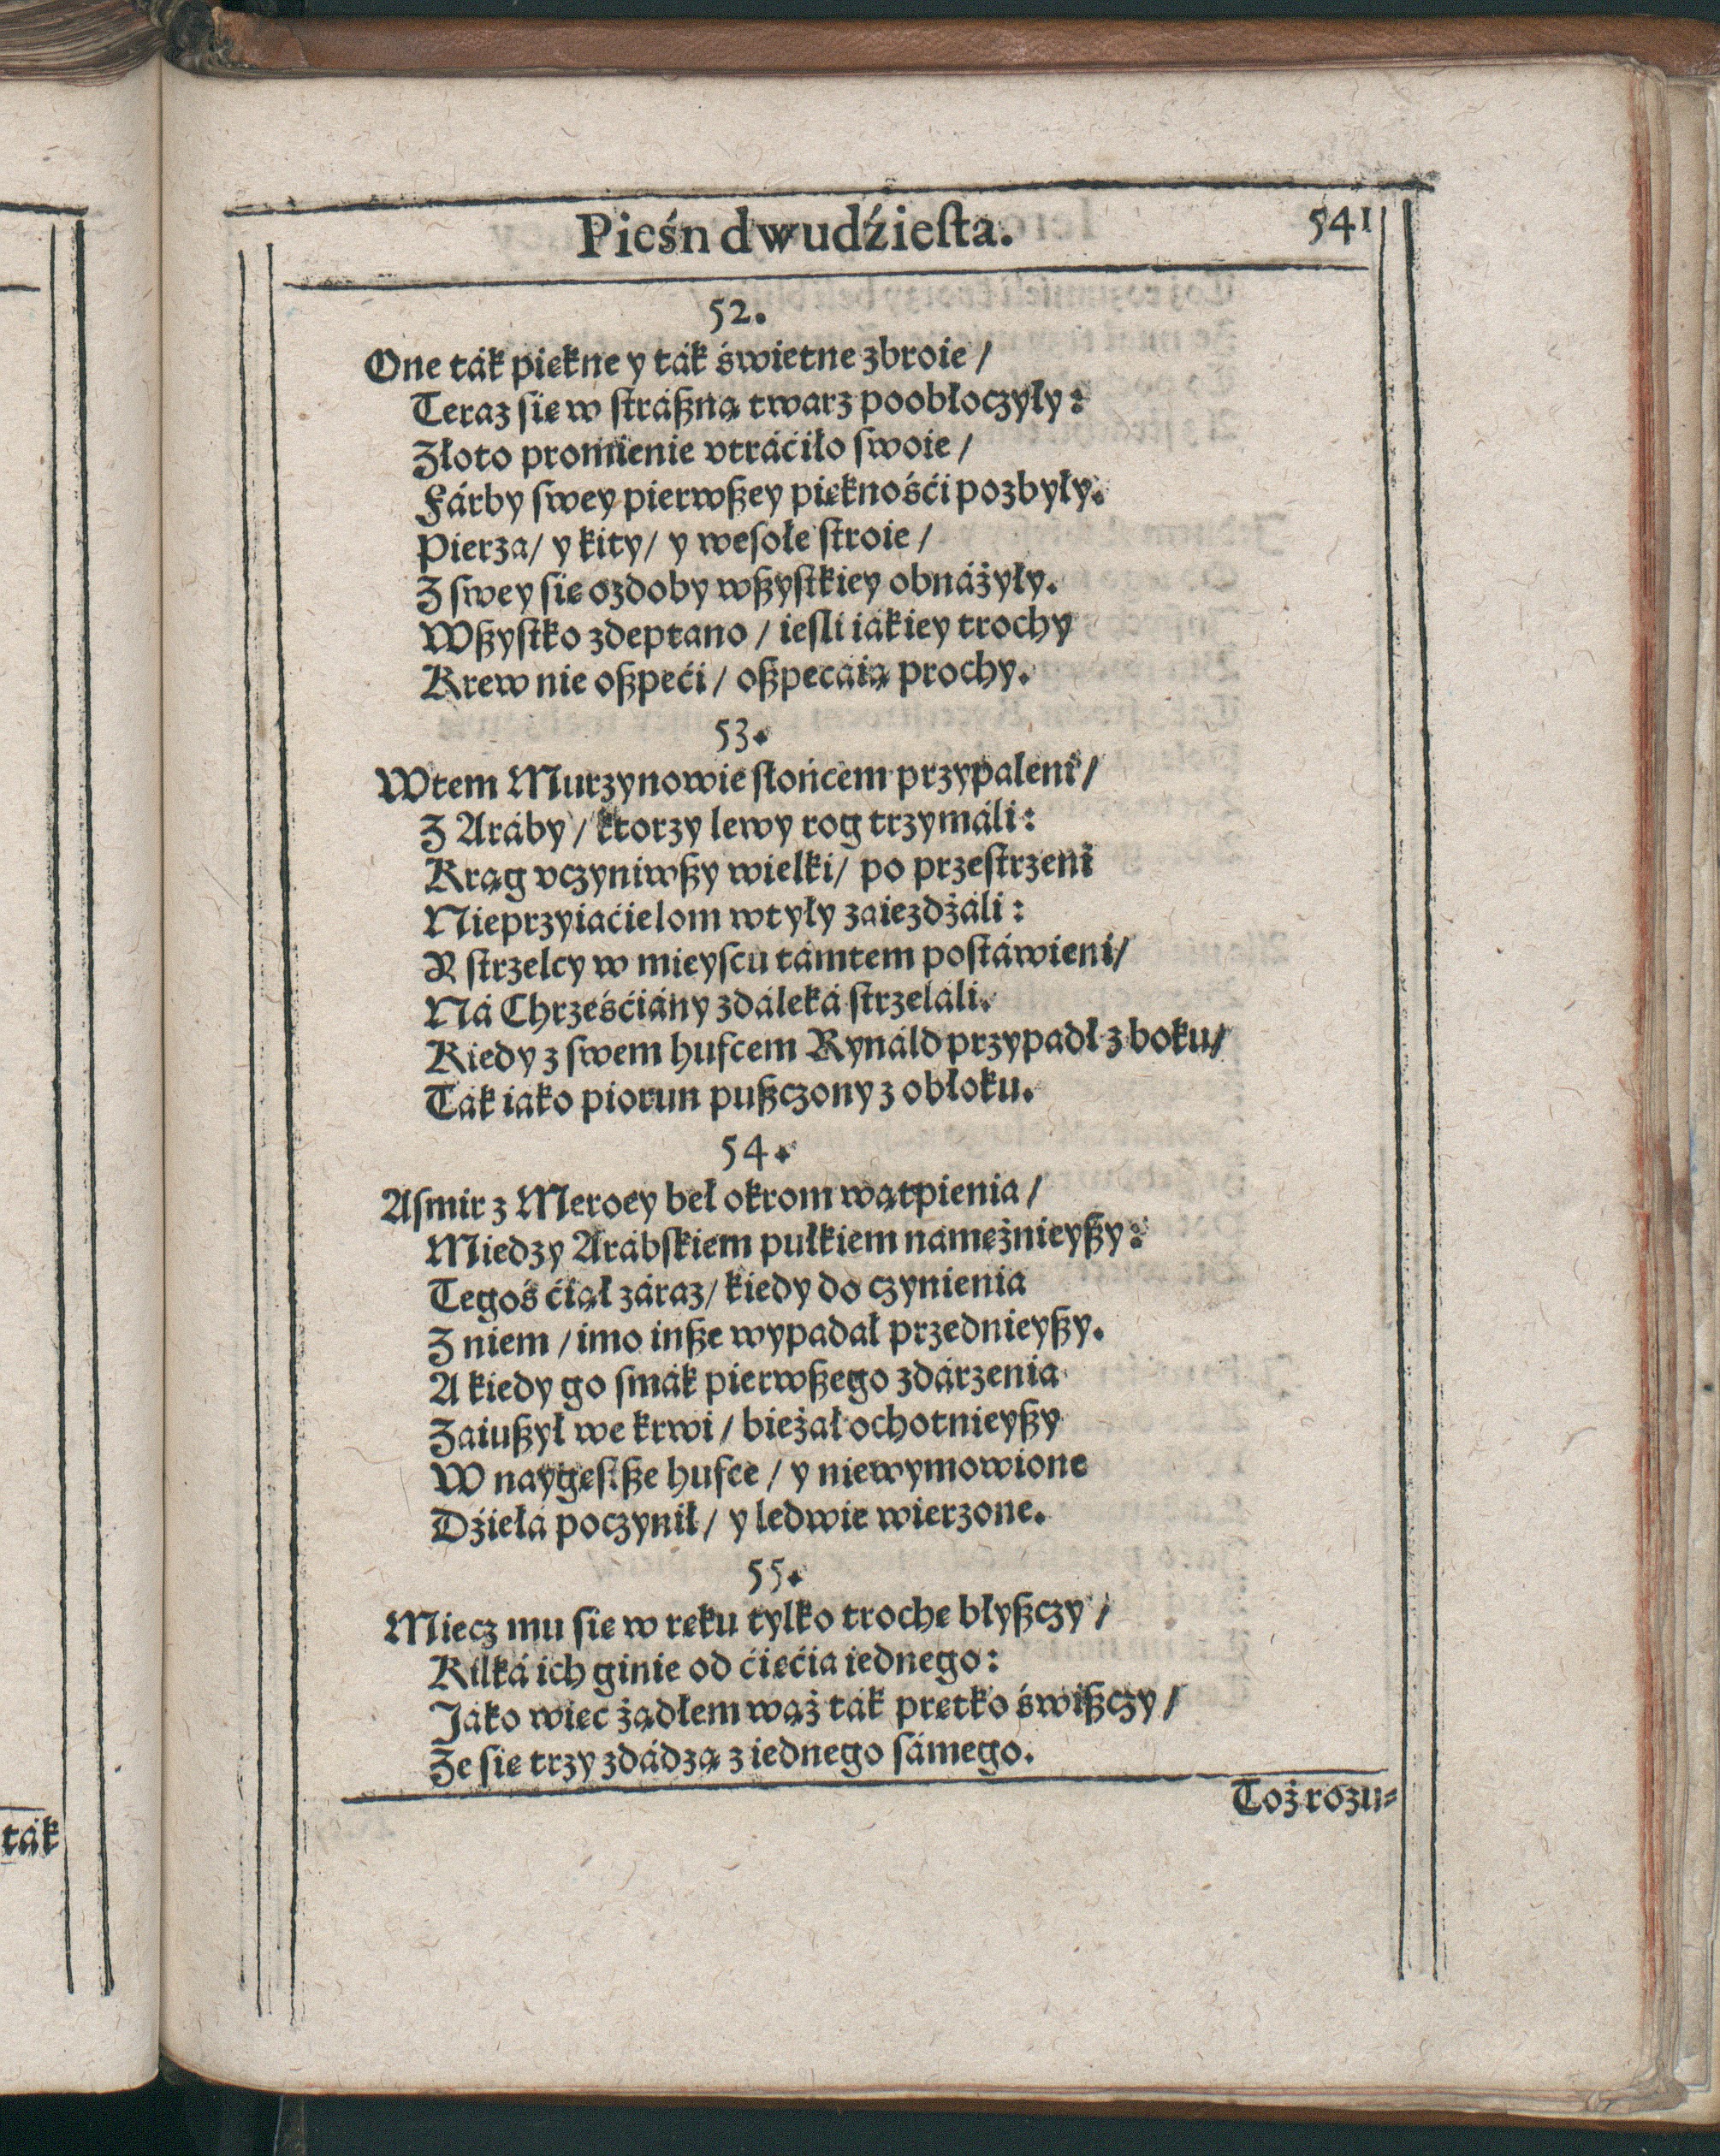 Pieśn dwudźieſta.
541
52.
One ták piękne y ták świetne zbroie /
Teraz się w ſtráßną twarz poobłoczyły:
Złoto promienie vtráćiło ſwoie /
Fárby ſwey pierwßey pięknośći pozbyły.
Pierza / y kity / y weſołe ſtroie /
Z ſwey się ozdoby wßyſtkiey obnáżyły.
Wßyſtko zdeptano / ieſli iákiey trochy
Krew nie oßpeći / oßpecáią prochy.
53.
Wtem Murzynowie ſłońcem przypaleni /
Z Aráby / ktorzy lewy rog trzymáli:
Krąg vczyniwßy wielki / po przeſtrzeni
Nieprzyiaćielom wtyły zaiezdżáli:
R ſtrzelcy w mieyſcu támtem poſtáwieni /
Ná Chrześćiány zdáleká ſtrzeláli.
Kiedy z ſwem hufcem Rynáld przypadł z boku /
Ták iáko piorun pußczony z obłoku.
54.
Aſmir z Meroey beł okrom wątpienia /
Miedzy Arábſkiem pułkiem namężnieyßy:
Tegoś ćiął záraz / kiedy do czynienia
Z niem / imo inße wypadał przednieyßy.
A kiedy go ſmák pierwßego zdárzenia
Zaiußył we krwi / bieżał ochotnieyßy
W naygęſtße hufce / y niewymowione
Dźiełá poczynił / y ledwie wierzone.
55.
Miecz mu się w ręku tylko trochę błyßczy /
Kilká ich ginie od ćięćia iednego:
Jáko więc żądłem wąż ták prętko świßczy /
Że się trzy zdádzą z iednego sámego.
Toż rozu-
ták